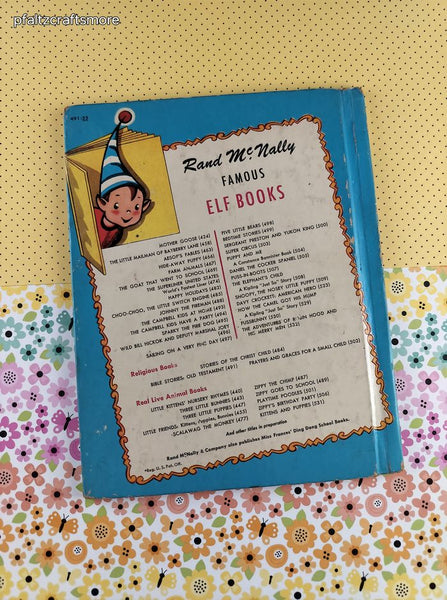 pfaltzcraftsmore
491-22
Rand McNally
FAMOUS
ELF BOOKS
MOTHER GOOSE (424)
THE LITTLE MAILMAN OF BAYBERRY LANE (458)
AESOP'S FABLES (463)
HIDE-AWAY PUPPY
FARM ANIMALS (467)
THE GOAT THAT WENT TO SCHOOL (469)
THE SUPERLINER UNITED STATES
World's Fastest Liner (474)
HAPPY HOLIDAYS (482)
CHOO-CHOO, THE LITTLE SWITCH ENGINE (485)
JOHNNY THE FIREMAN (489)
THE CAMPBELL KIDS AT HOME (493)
THE CAMPBELL KIDS HAVE A PARTY (494)
SPARKY THE FIRE DOG (495)
WILD BILL HICKOK AND DEPUTY MARSHAL JOEY
SAILING ON A VERY FINE DAY (497)
FIVE LITTLE BEARS (498)
BEDTIME STORIES (499)
SERGEANT PRESTON AND YUKON KING (500)
SUPER CIRCUS (503)
PUPPY AND ME
A Constance Bannister Book (504)
DANIEL THE COCKER SPANIEL (505)
PUSS-IN-BOOTS (507)
THE ELEPHANT'S CHILD
A Kipling "Just So" Story (508)
SNOOPY, THE NOSEY LITTLE PUPPY (509)
DAVY CROCKETT: AMERICAN HERO (523)
HOW THE CAMEL GOT HIS HUMP
A Kipling "Just So" Story (525)
PUSSBUNNY (530)
THE ADVENTURES OF ROBIN HOOD AND
HIS MERRY MEN (532)
Religious Books
STORIES OF THE CHRIST CHILD (484)
BIBLE STORIES: OLD TESTAMENT (491)
PRAYERS AND GRACES FOR A SMALL CHILD (502)
Real Live Animal Books
LITTLE KITTENS' NURSERY RHYMES (440)
THREE LITTLE BUNNIES (443)
THREE LITTLE PUPPIES (447)
LITTLE FRIENDS: Kittens, Puppies, Bunnies (453)
SCALAWAG THE MONKEY (477)
ZIPPY THE CHIMP (487)
ZIPPY GOES TO SCHOOL (489)
PLAYTIME POODLES (501)
ZIPPY'S BIRTHDAY PARTY (506)
KITTENS AND PUPPIES (531)
And other titles in preparation
Rand McNally & Company also publishes Miss Frances' Ding Dong School Books.
*Reg. U. S. Pat. Off.